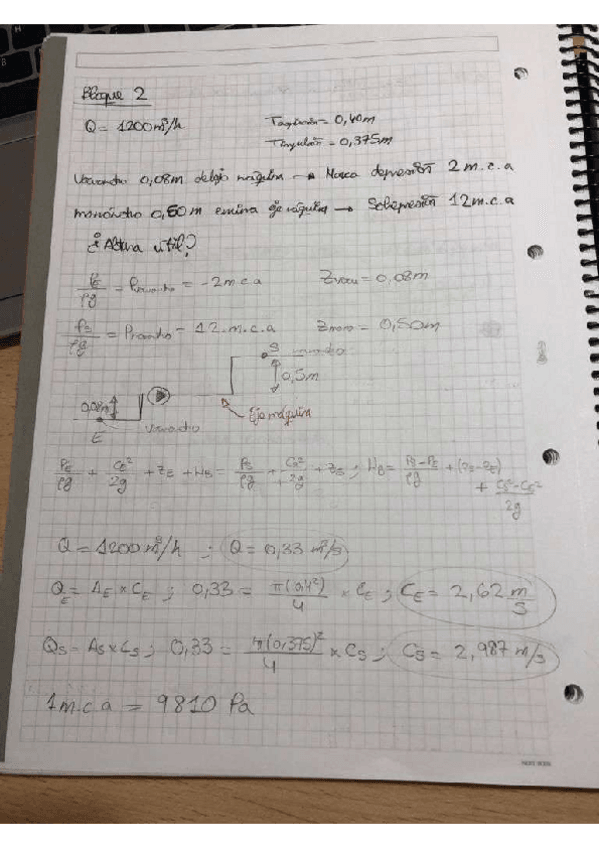 Bloque 2
Q = 1200 m³/h
Taspiración = 0,40m
Timpulsión = 0,375m
Vacuómetro 0,08m debajo máquina → Marca depresión 2 m.c.a
manómetro 0,50 m encima eje máquina → Sobrepresión 12 m.c.a
¿Altura útil?
PE/ρg = = -2 m c a Zvacu = 0,08m
PS/ρg = = 12 m.c.a Zmano = 0,50m
S
0,5m
0,08m
Eje máquina
E
PE/ρg + CE²/2g + ZE + HB = PS/ρg + CS²/2g + ZS ; HB = PS-PE/ρg + (ZS-ZE) + CS²-CE²/2g
Q = 1200 m³/h ; Q = 0,33 m³/s
QE = AE × CE ; 0,33 = π(0,4²)/4 × CE ; CE = 2,62 m/s
QS = AS × CS ; 0,33 = π(0,375)²/4 × CS ; CS = 2,987 m/s
1 m.c.a = 9810 Pa